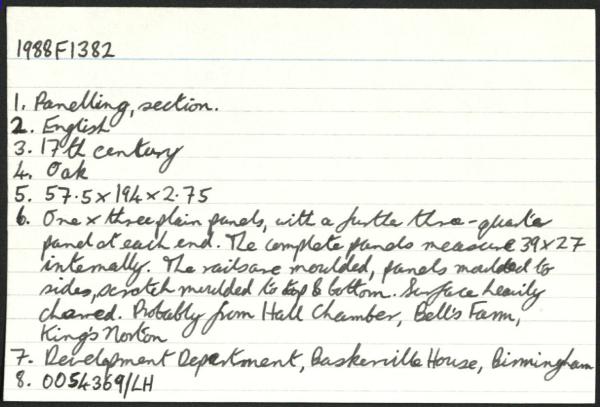 1988F1382
1. Panelling, section.
2. English
3. 17th century
4. Oak
5. 57.5 x 194 x 2.75
6. One x three plain panels, with a further three-quarter
panel at each end. The complete panels measure 39 x 27
internally. The rails are moulded, panels moulded to
sides, scratch moulded to top & bottom. Surface heavily
charred. Probably from Hall Chamber, Bell's Farm,
King's Norton
7. Development Department, Baskerville House, Birmingham
8. 0054369/LH